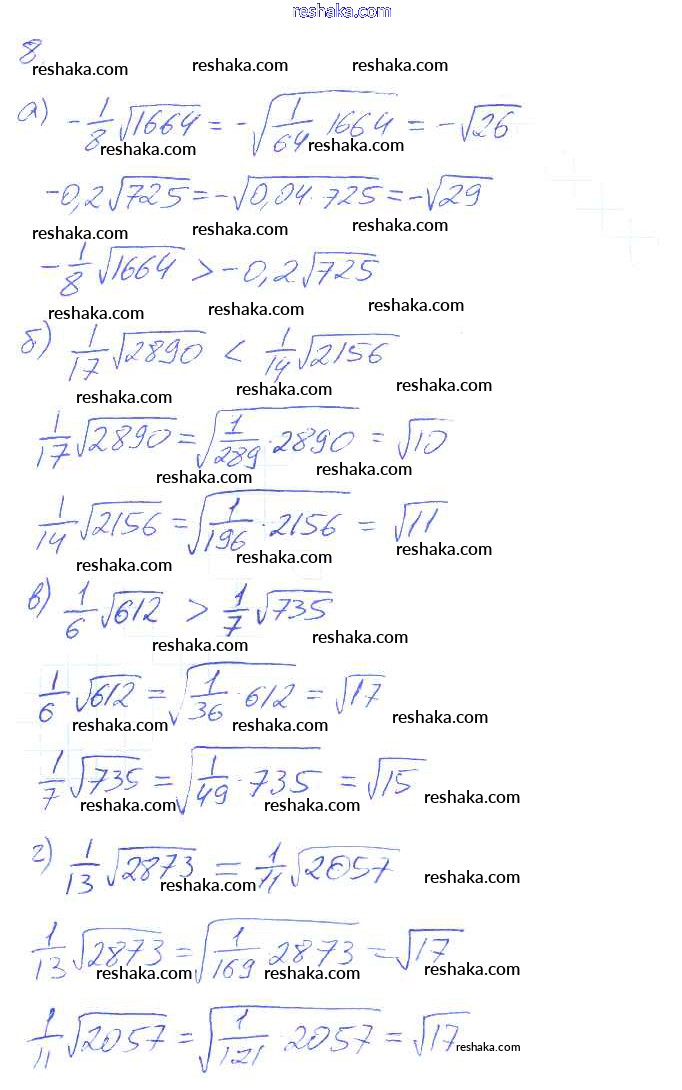 reshaka.com
8
reshaka.com reshaka.com reshaka.com
а) -1/8 √1664 = -√(1/64 1664) = -√26
reshaka.com reshaka.com
-0,2√725 = -√(0,04·725) = -√29
reshaka.com reshaka.com reshaka.com
-1/8 √1664 > -0,2√725
reshaka.com reshaka.com reshaka.com
б) 1/17 √2890 < 1/14 √2156
reshaka.com reshaka.com reshaka.com
1/17 √2890 = √(1/289 · 2890) = √10
reshaka.com reshaka.com
1/14 √2156 = √(1/196 · 2156) = √11
reshaka.com reshaka.com reshaka.com
в) 1/6 √612 > 1/7 √735
reshaka.com reshaka.com
1/6 √612 = √(1/36 · 612) = √17
reshaka.com reshaka.com reshaka.com
1/7 √735 = √(1/49 · 735) = √15
reshaka.com reshaka.com reshaka.com
г) 1/13 √2873 = 1/11 √2057
reshaka.com reshaka.com
1/13 √2873 = √(1/169 2873) = √17
reshaka.com reshaka.com reshaka.com
1/11 √2057 = √(1/121 · 2057) = √17
reshaka.com reshaka.com reshaka.com